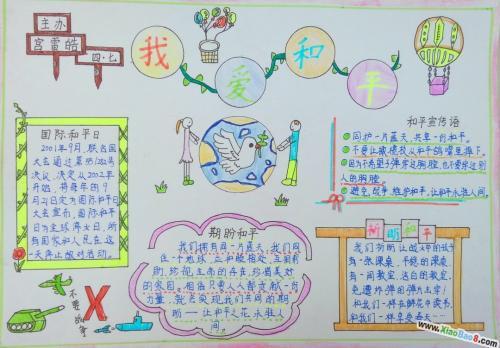 主办
宫雷皓
四·七
我爱和平
国际和平日
2001年9月,联合国
大会通过第55/282号
决议,决定从2002年
开始,将每年的9
月21日定为国际和平日
大会宣布,国际和平
日为全球停火日,所
有国家和人民在这
一天停止敌对活动。
和平宣传语
同护一片蓝天,共享一份和平。
不要让橄榄枝从和平鸽嘴里掉下。
因为不希望子弹穿过胸膛,也不要穿过别
人的胸膛。
避免战争,维护和平,让和平永驻人间。
期盼和平
我们拥有同一片蓝天,我们同
住一个地球,应和睦相处,互相帮
助,珍视生命的存在,珍惜美好
的家园。相信只要人人都贡献一份
力量,就会实现我们共同的期
盼——让和平之花永驻人
间。
祈盼和平
我们祈盼让战火中的孩子
有一张课桌,平稳的课桌
有一间教室,洁白的教室,
免遭炸弹国弹击穿!
和我们一样在鲜花中读书,
和我们一样享受每天……
不要战争
www.XiaoBao8.com